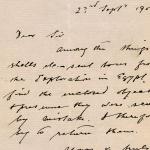 23rd Septr 190
Dear Sir
Among the things
shells etc. sent home from
the Exploration in Egypt
find the enclosed objects
I presume they were sent
by mistake. I therefore
beg to return them.